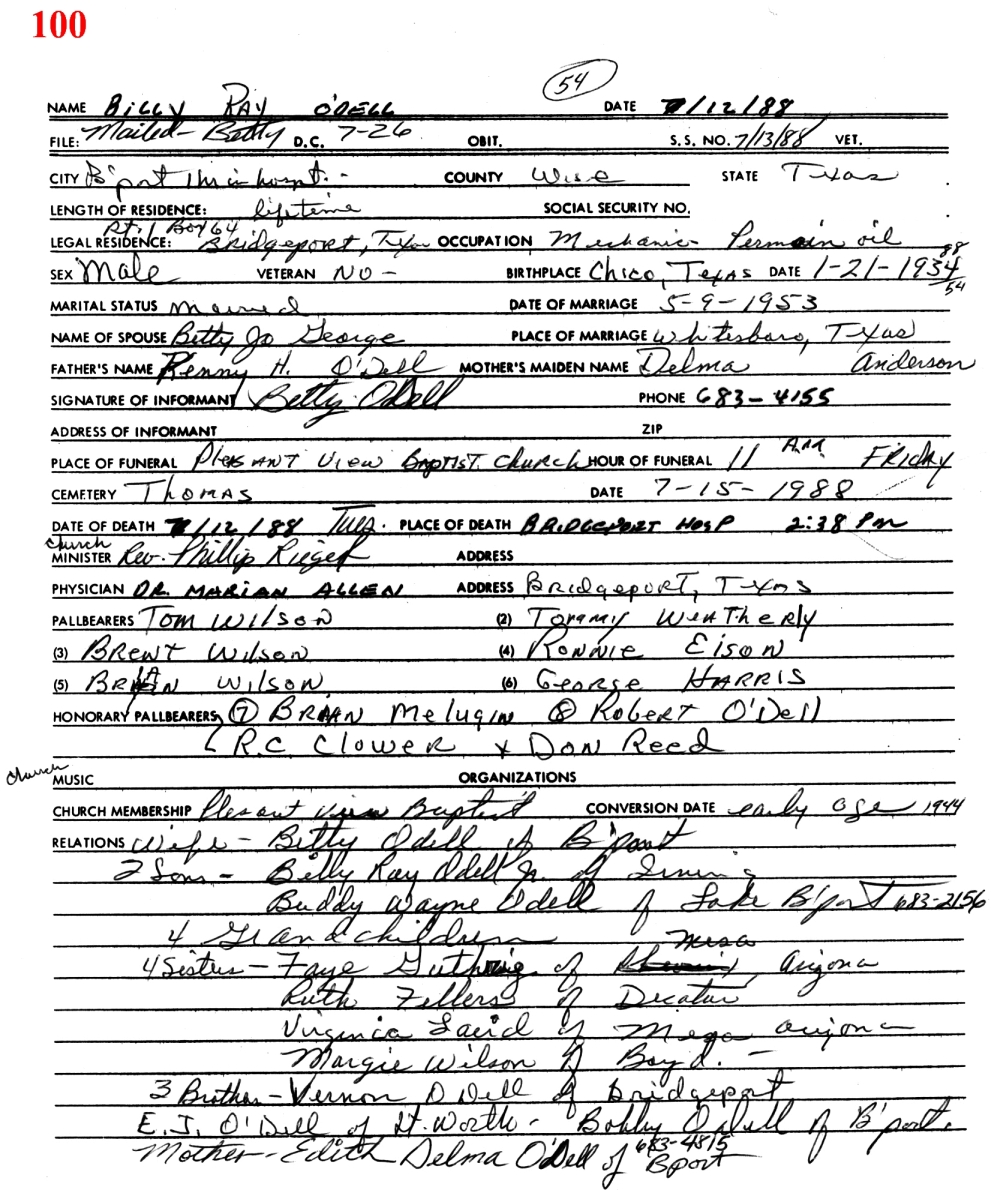 100
54
NAME BILLY RAY O'DELL DATE 7/12/88
FILE: Mailed - Betty D.C. 7-26 OBIT. S.S. NO. 7/13/88 VET.
CITY B'port hospt. - COUNTY Wise STATE Texas
LENGTH OF RESIDENCE: lifetime SOCIAL SECURITY NO.
Rt. 1 Box 64
LEGAL RESIDENCE: Bridgeport, Texas OCCUPATION Mechanic - Permain oil
SEX Male VETERAN NO - BIRTHPLACE Chico, Texas DATE 1-21-1934 88 54
MARITAL STATUS Married DATE OF MARRIAGE 5-9-1953
NAME OF SPOUSE Betty Jo George PLACE OF MARRIAGE Whitesboro, Texas
FATHER'S NAME Renny H. O'Dell MOTHER'S MAIDEN NAME Delma Anderson
SIGNATURE OF INFORMANT Betty O'Dell PHONE 683-4155
ADDRESS OF INFORMANT ZIP
PLACE OF FUNERAL PleasANT View BAPTIST Church HOUR OF FUNERAL 11 AM FRIDAY
CEMETERY Thomas DATE 7-15-1988
DATE OF DEATH 7/12/88 Tues. PLACE OF DEATH BRIDGEPORT HOSP 2:38 PM
church
MINISTER Rev. Phillip Rieger ADDRESS
PHYSICIAN DR. MARIAN ALLEN ADDRESS Bridgeport, Texas
PALLBEARERS Tom Wilson (2) Tommy Weatherly
(3) BRENT Wilson (4) RONNIE Eison
(5) BRIAN Wilson (6) George HARRIS
HONORARY PALLBEARERS 7 BRIAN Melugin 8 Robert O'Dell
R.C. Clower & Don Reed
church
MUSIC ORGANIZATIONS
CHURCH MEMBERSHIP Plesant View Baptist CONVERSION DATE early age 1944
RELATIONS Wife - Betty Odell of B'port
2 Sons - Billy Ray Odell Jr. of Irving
Buddy Wayne Odell of Lake B'port 683-2156
4 Grandchildren
4 Sisters - Faye Guthrie of Mesa, Arizona
Ruth Fellers of Decatur
Virginia Laird of Mesa arizona
Margie Wilson of Boyd. -
3 Brothers - Vernon O'Dell of bridgeport
E.J. O'Dell of Ft. Worth - Bobby Odell of B'port.
683-4815
Mother - Edith Delma O'Dell of Bport